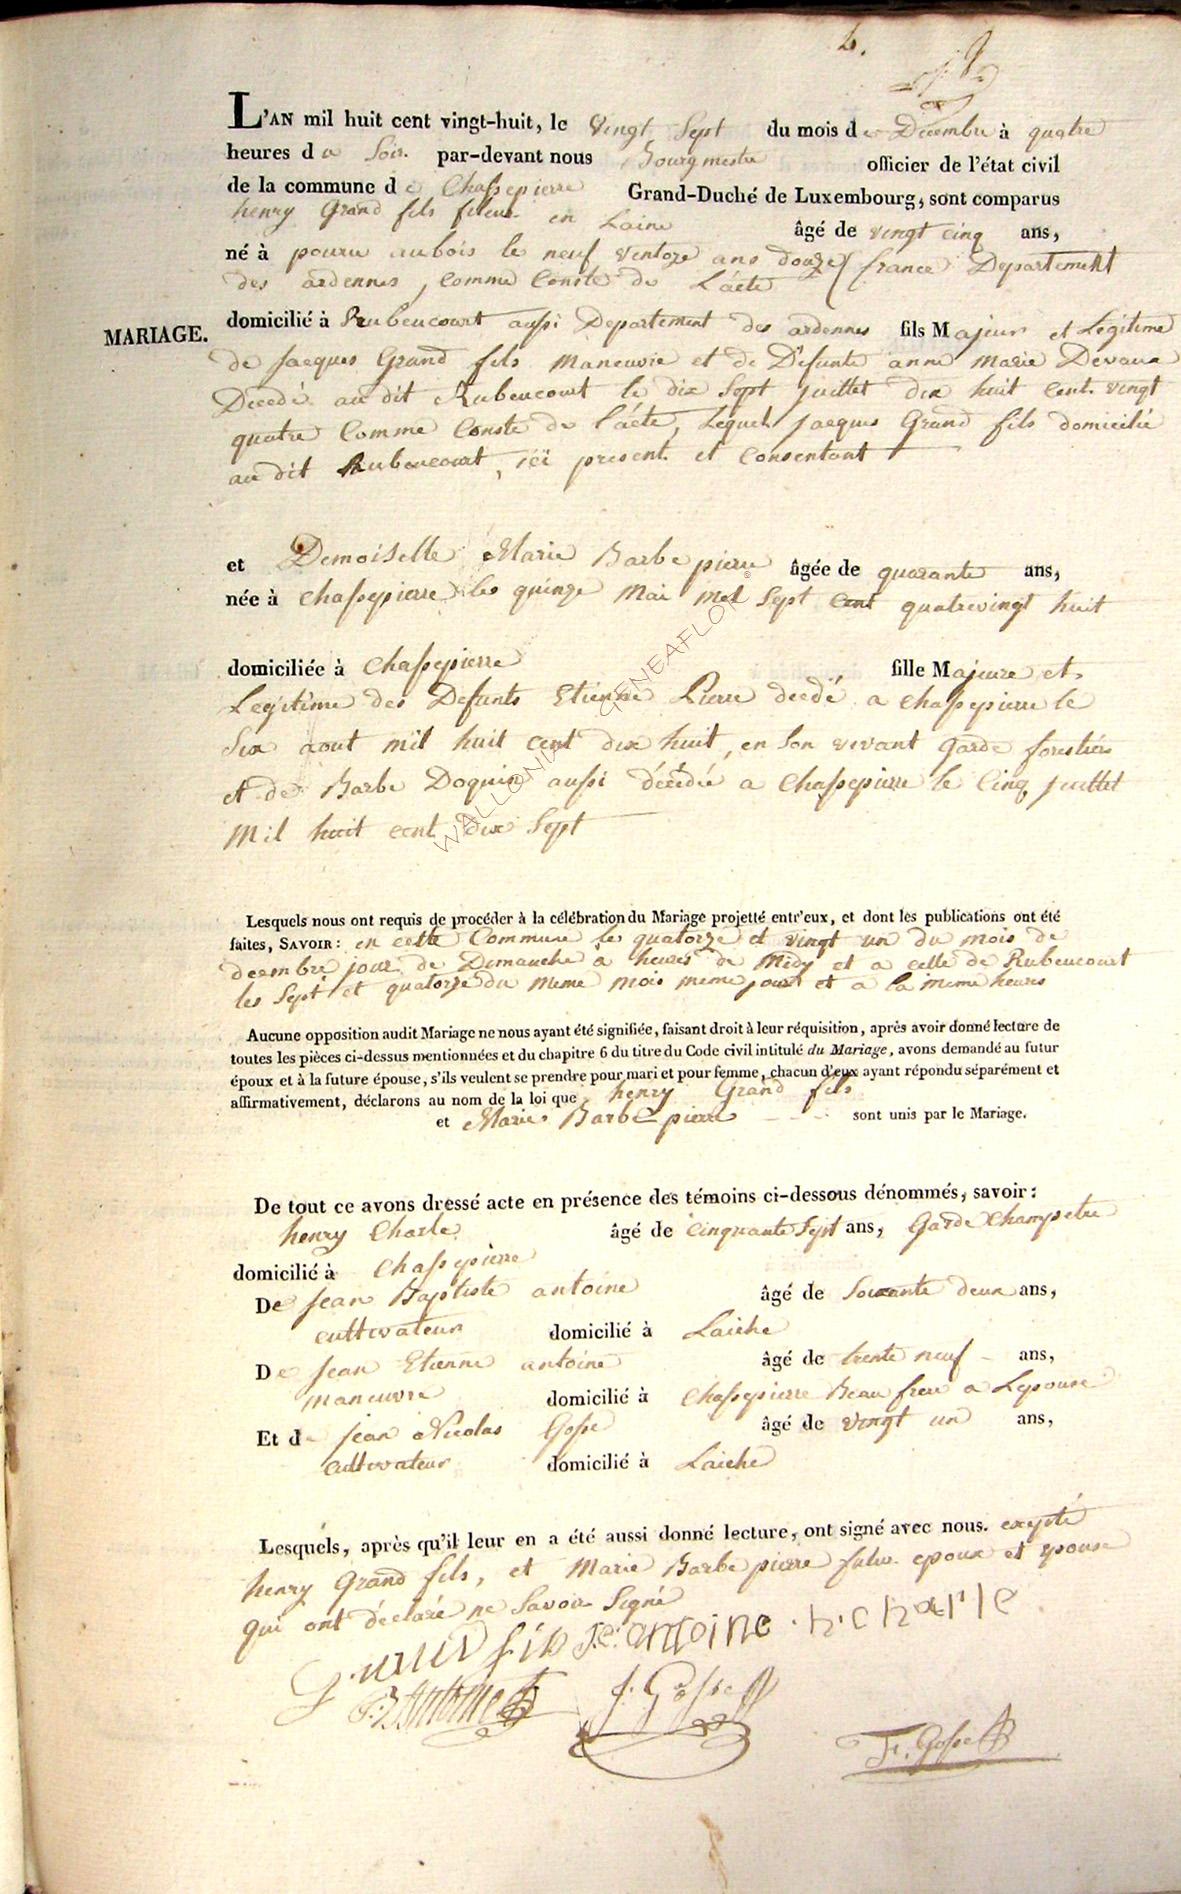 6.
L'AN mil huit cent vingt-huit, le vingt sept du mois de Decembre à quatre
heures du Soir. par-devant nous Bourgmestre officier de l'état civil
de la commune de Chassepierre Grand-Duché de Luxembourg, sont comparus
henry Grand fils fileur en Laine âgé de vingt cinq ans,
né à pouru aubois le neuf ventoze ans douze (france Departement
des ardennes, comme Conste de L'acte
MARIAGE.
domicilié à Rubeucourt aussi Departement des ardennes fils Majeur et Légitime
de Jacques Grand fils Maneuvre et de Defunte anne Marie Devaux
Decedé au dit Rubeucourt le dix Sept juillet dix huit Cent vingt
quatre Comme Conste de l'acte, Lequel jacques Grand fils domicilié
au dit Rubeucourt, ici present et Consentant
et Demoiselle Marie Barbe pierre âgée de quarante ans,
née à chassepierre les quinze Mai Mil Sept Cent quatrevingt huit
domiciliée à Chassepierre fille Majeure et
Legitime des Defunts Etienne Pierre decdé a chassepierre le
Six aout mil huit cent dix huit, en Son vivant Garde forestiers
et de Barbe Doquin aussi décédée a Chassepierre le Cinq juillet
Mil huit cent dix Sept
WALLONIA GENEAFLOR ©
Lesquels nous ont requis de procéder à la célébration du Mariage projetté entr'eux, et dont les publications ont été
faites, SAVOIR: en cette Commune le quatorze et vingt un du mois de
decembre jour de Dimanche à heures de Midy et a celle de Rubeucourt
les Sept et quatorze du meme mois meme jours et a la meme heures
Aucune opposition audit Mariage ne nous ayant été signifiée, faisant droit à leur réquisition, après avoir donné lecture de
toutes les pièces ci-dessus mentionnées et du chapitre 6 du titre du Code civil intitulé du Mariage, avons demandé au futur
époux et à la future épouse, s'ils veulent se prendre pour mari et pour femme, chacun d'eux ayant répondu séparément et
affirmativement, déclarons au nom de la loi que henry Grand fils
et Marie Barbe pierre sont unis par le Mariage.
De tout ce avons dressé acte en présence des témoins ci-dessous dénommés, savoir:
henry Charle âgé de Cinquante Sept ans, Garde Champetre
domicilié à Chassepierre
De Jean Baptiste antoine âgé de Soixante deux ans,
cultivateur domicilié à Laiche
De Jean Etienne antoine âgé de trente neuf ans,
maneuvre domicilié à Chassepierre Beau frere a Lepouse
Et de jean Nicolas Gosse âgé de vingt un ans,
cultivateur domicilié à Laiche
Lesquels, après qu'il leur en a été aussi donné lecture, ont signé avec nous. exepté
henry Grand fils, et Marie Barbe pierre futur epoux et epouse
qui ont déclaré ne Savoir Signé
J. fils J.e. antoine . h. charle
J.B Antoine J. Gosse
F. Gosse